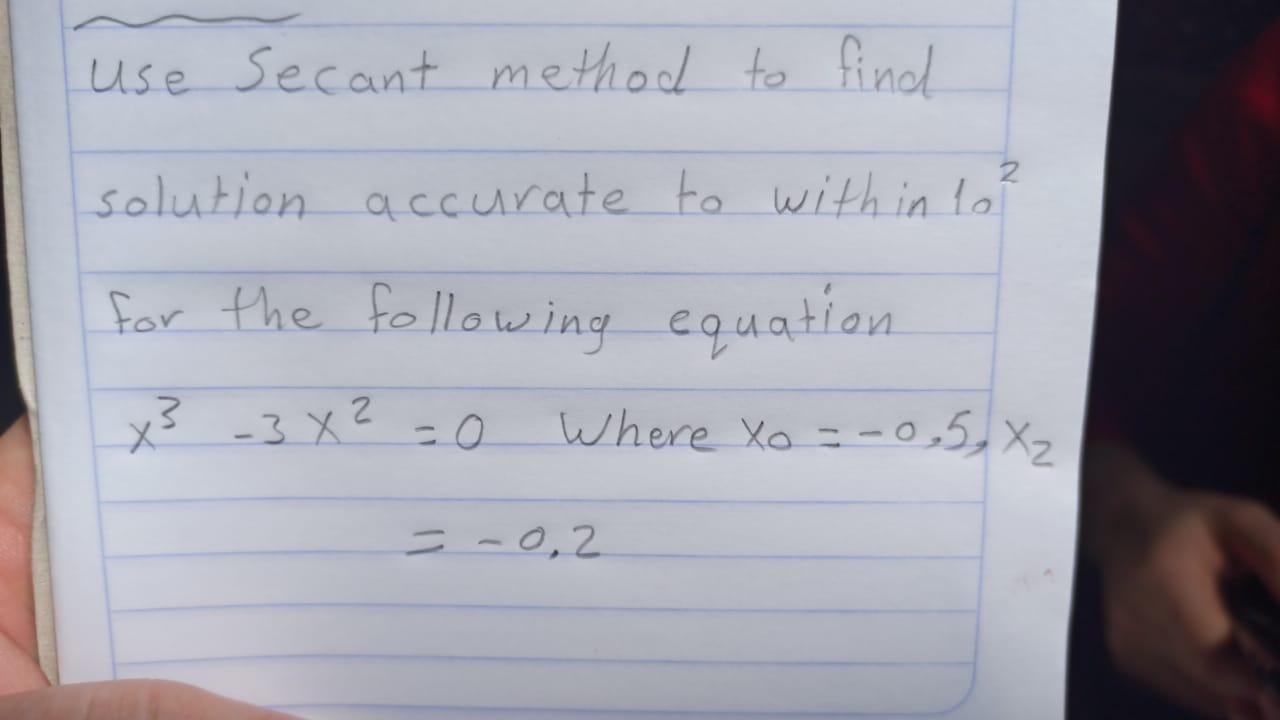 Use Secant method to find
solution accurate to within 10²
for the following equation
x³ -3x² = 0 Where x₀ = -0,5, x₂
= -0,2